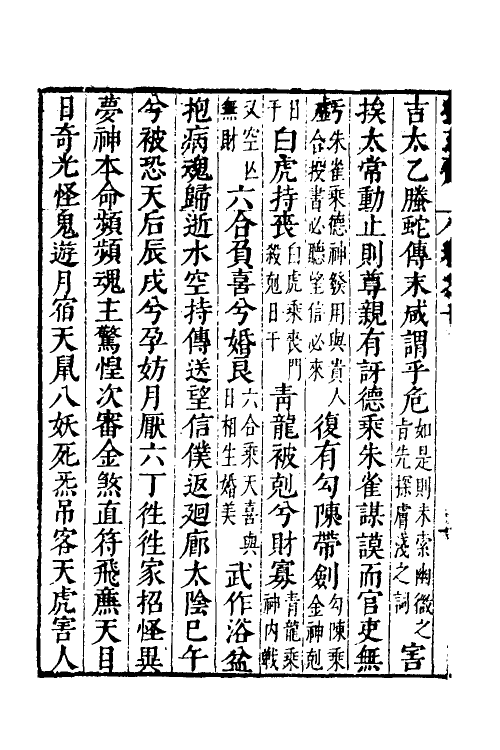 吉太乙螣蛇傳末咸謂乎危如是則未索幽微之旨先探膚淺之詞害
挨太常動止則尊親有訝德乘朱雀謀謨而官吏無
虧朱雀乘德神發用與貴人虛合投書必聽望信必來復有勾陳帶劍勾陳乘金神剋
日干白虎持丧白虎乘喪門殺剋日干青龍被剋兮財寡青龍乘神內戰
又空亡無財六合負喜兮婚良六合乘天喜與日相生婚美武作浴盆
抱病魂歸逝水空持傳送望信僕返廻廊太陰巳午
兮被恐天后辰戌兮孕妨月厭六丁徃徃家招怪異
夢神本命頻頻魂主驚惶次審金煞直符飛廉天目
日奇光怪鬼遊月宿天鼠八妖死炁吊客天虎害人